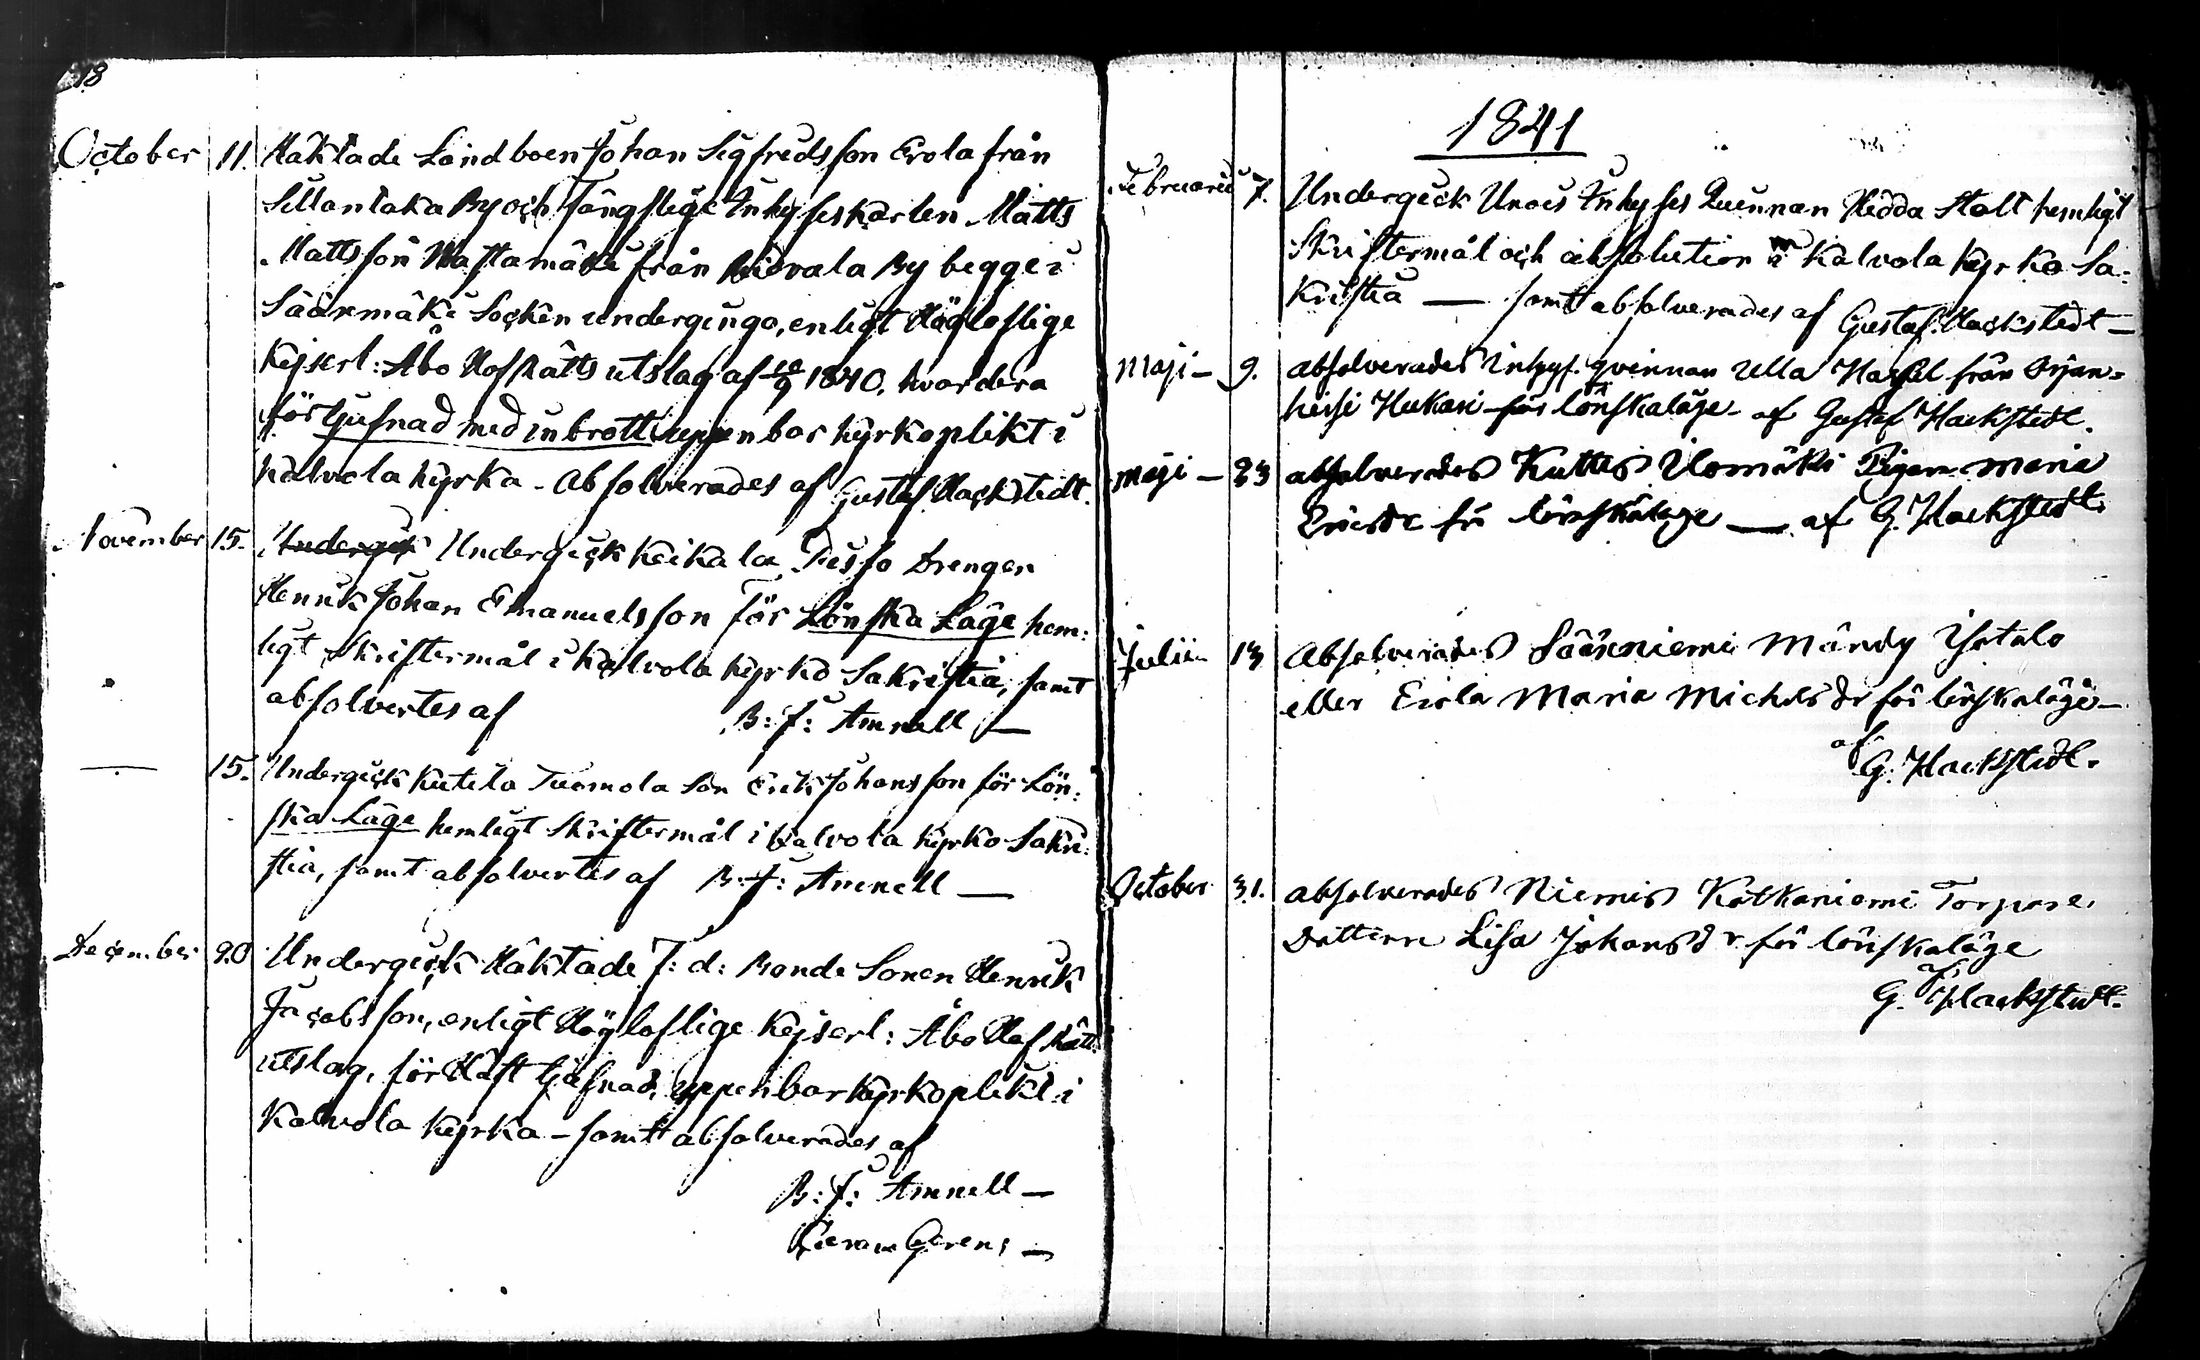 18
October 11. Häktade Landboen Johan Sigfredsson Erola från
Sillantaka By och Fängslige Inhyseskarlen Matts
Mattsson Mattamäki från Ridvala By begge i
Sääxmäki Socken undergingo, enligt Högloflige
Kejserl: Åbo HofRätts utslag af 10/9 1840, hvardera
för tjufnad med inbrott uppenbar kyrkoplikt i
Kalvola kyrka - Absolverades af Gustaf Hackstedt.
November 15. Undergick Keikala Tesso Drengen
Henrik Johan Emanuelsson för Lönska Läge hem:
ligt Skriftermål i Kalvola kyrko Sakristia, samt
absolvertes af B: J: Amnell —
— 15. Undergick Kutila Tuomola Son Erik Johansson för Lön:
ska Läge hemligt Skriftermål i Kalvola kyrko Sakri:
stia, samt absolvertes af B: J: Amnell —
December 20 Undergick Häktade F: d: Bonde Sonen Henrik
Jacobsson, enligt Högloflige Kejserl: Åbo HofRätts
utslag, för Häst tjufnad, uppenbar kyrkoplikt i
Kalvola kyrka - samt absolverades af
B: J: Amnell —
1841
Februarii 7. Undergick Unois Inhyses Quinnan Hedda Stolt hemligt
Skriftermål och absolution i Kalvola kyrko Sa:
kristia — samt absolverades af Gustaf Hackstedt —
Maji — 9. absolverades Inhys. qvinnan Ulla från Orjan=
heisi Heikari för lönskaläge - af Gustaf Hackstedt.
Maji — 23 absolverades Kuttis Uomäki Pigan Maria
Ericsdr för lönskaläge — af G. Hackstedt.
Julii 13 Absolverades Sääxniemi Mändy Ystalo
eller Eerola Maria Michelsdr för lönskaläge —
af
G. Hackstedt.
October 31. absolverades Niemis Kotkaniemi Torpare
Dottern Lisa Johansdr för lönskaläge
af
G. Hackstedt.